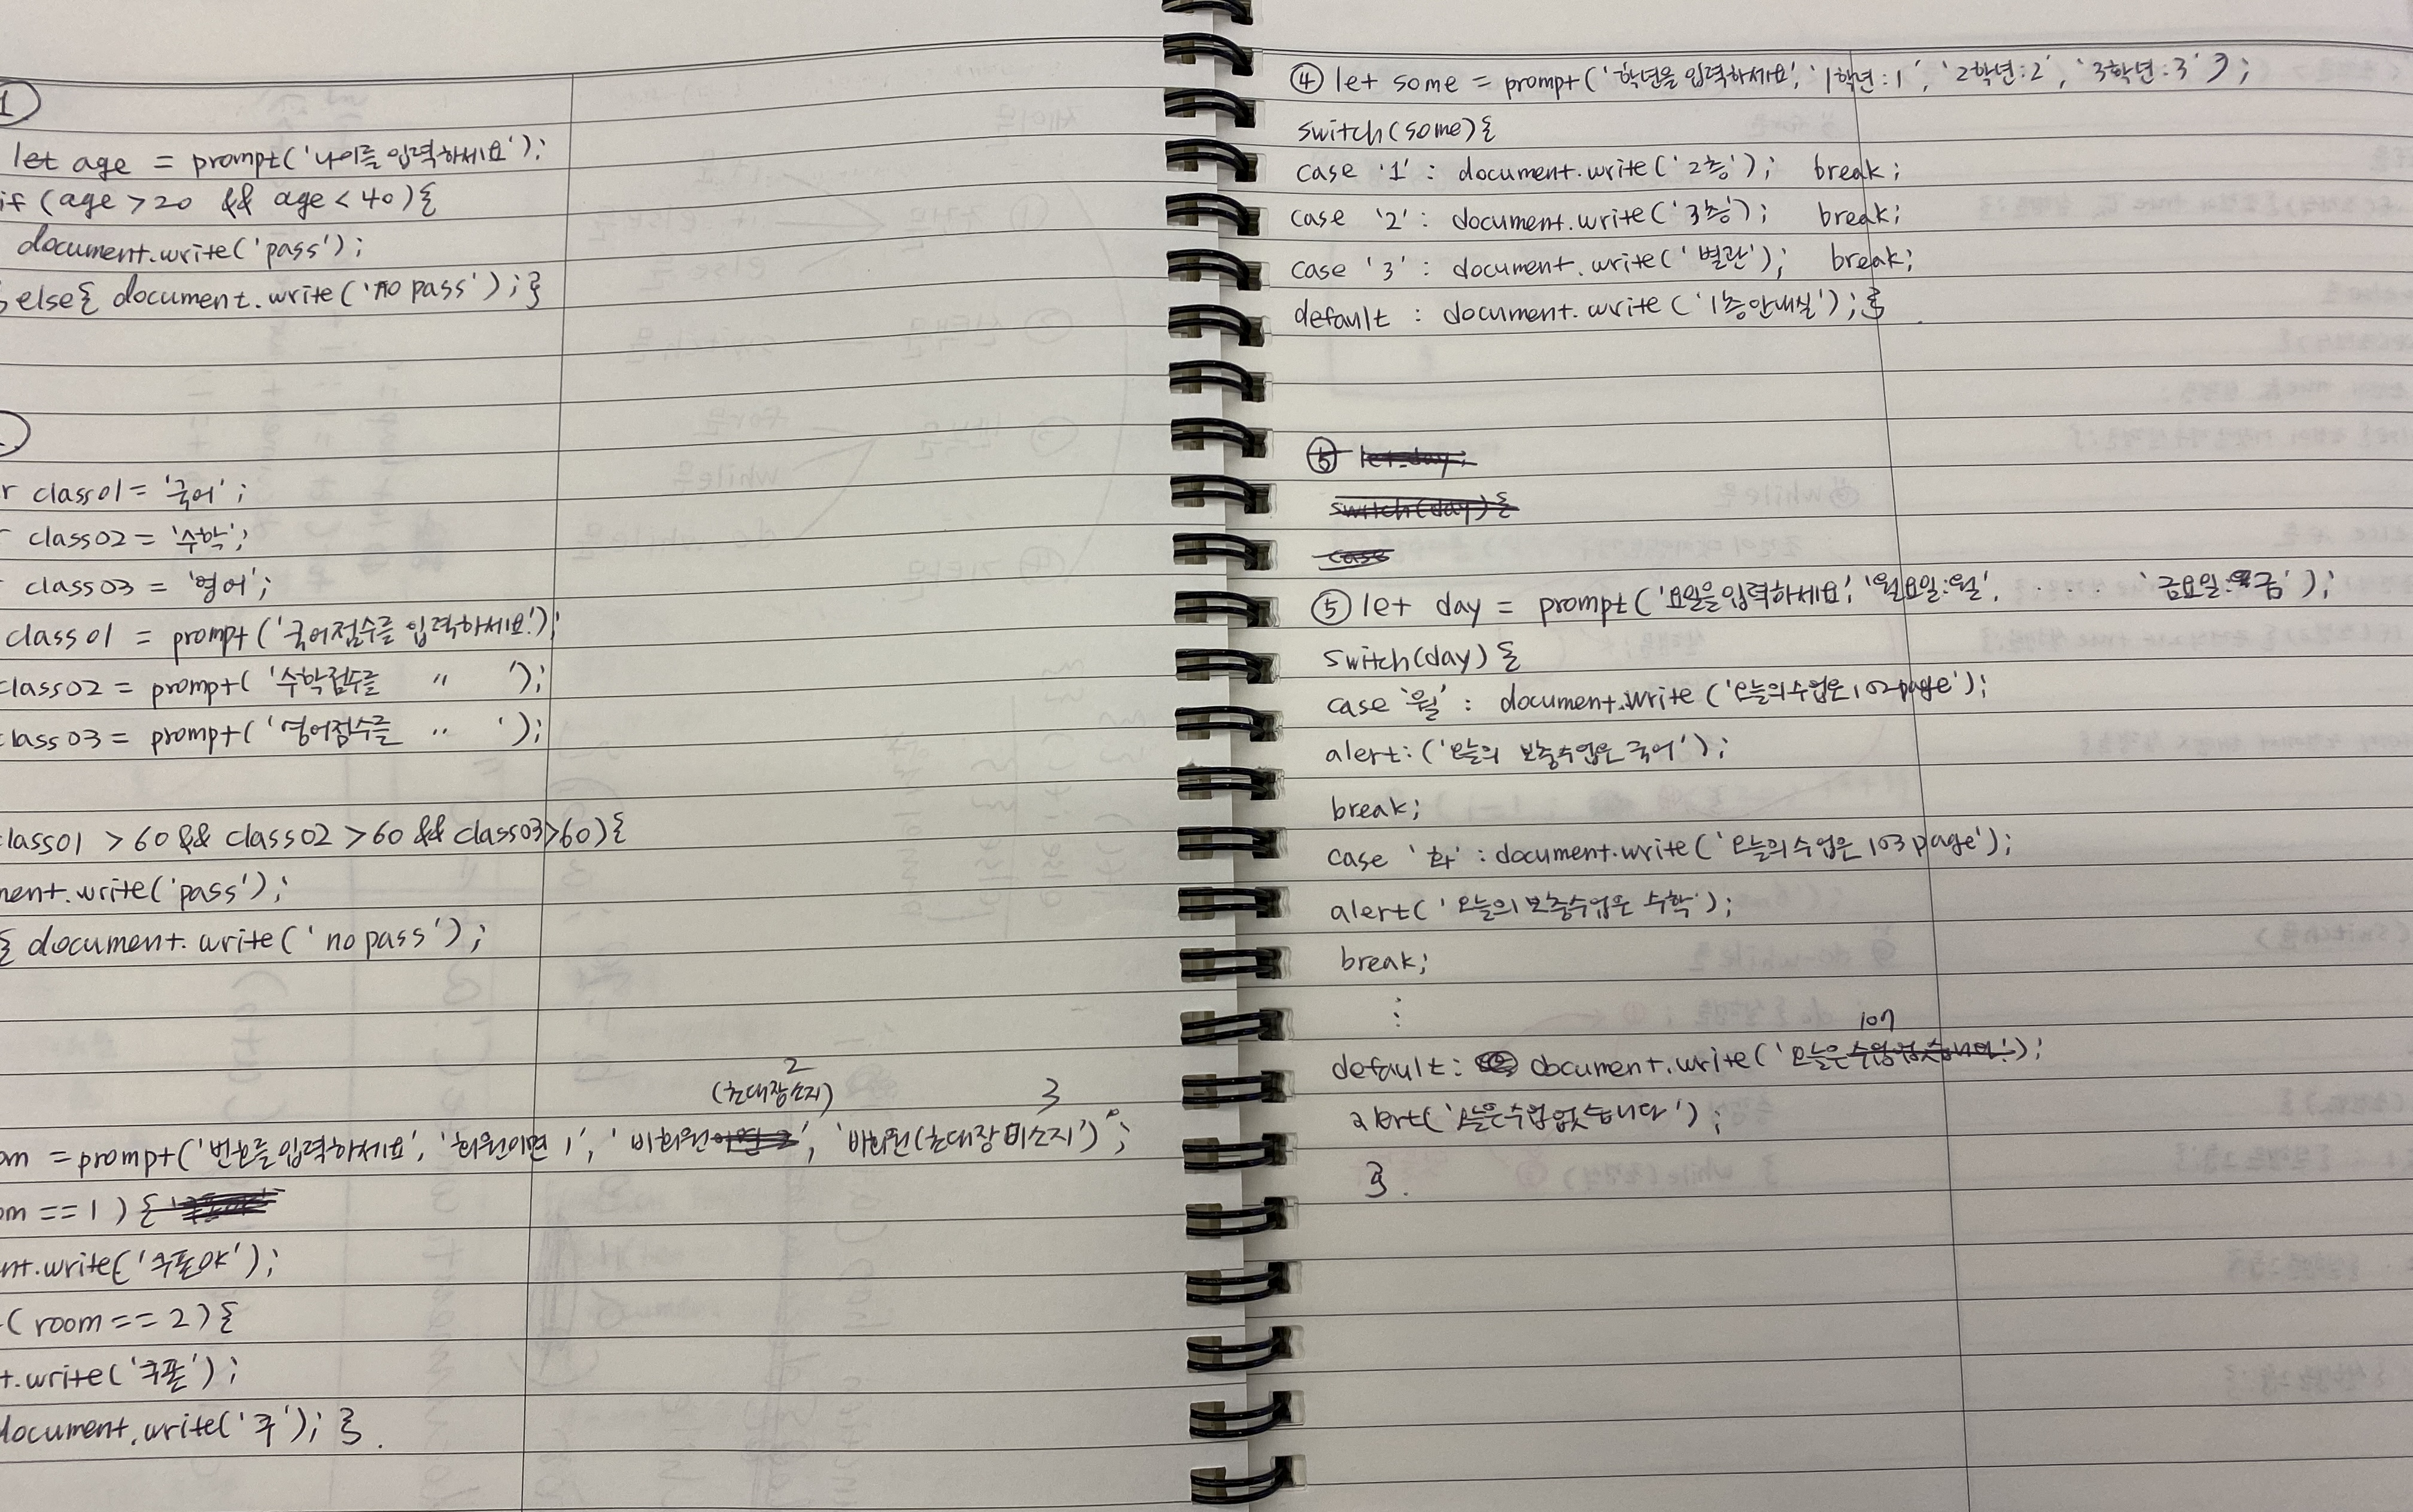 1
let age = prompt('나이를 입력하세요');
if (age > 20 && age < 40){
document.write('pass');
} else{ document.write('no pass');}
r class01 = '국어';
r class02 = '수학';
r class03 = '영어';
class01 = prompt('국어점수를 입력하세요.');
class02 = prompt('수학점수를 〃 ');
class03 = prompt('영어점수를 〃 ');
class01 > 60 && class02 > 60 && class03 > 60){
ment.write('pass');
{ document.write('no pass');
2
(초대장소지) 3
om = prompt('번호를 입력하세요', '회원이면 1', '비회원', '비회원(초대장 미소지');
om == 1) {
nt.write('쿠폰야');
(room == 2){
t.write('쿠폰');
document.write('쿠'); }.
④ let some = prompt('학년을 입력하세요', '1학년:1', '2학년:2', '3학년:3');
switch(some){
case '1' : document.write('2층'); break;
case '2' : document.write('3층'); break;
case '3' : document.write('별관'); break;
default : document.write('1층안내실');}
⑤ let day;
switch(day){
case
⑤ let day = prompt('요일을 입력하세요', '월요일:월', . . . . '금요일:금');
switch(day) {
case '월' : document.write('오늘의 수업은 102page');
alert:('오늘의 보충수업은 국어');
break;
case '화' : document.write('오늘의 수업은 103page');
alert('오늘의 보충수업은 수학');
break;
⋮
107
default: document.write('오늘은 수업없습니다.');
alert('오늘은 수업없습니다');
}.